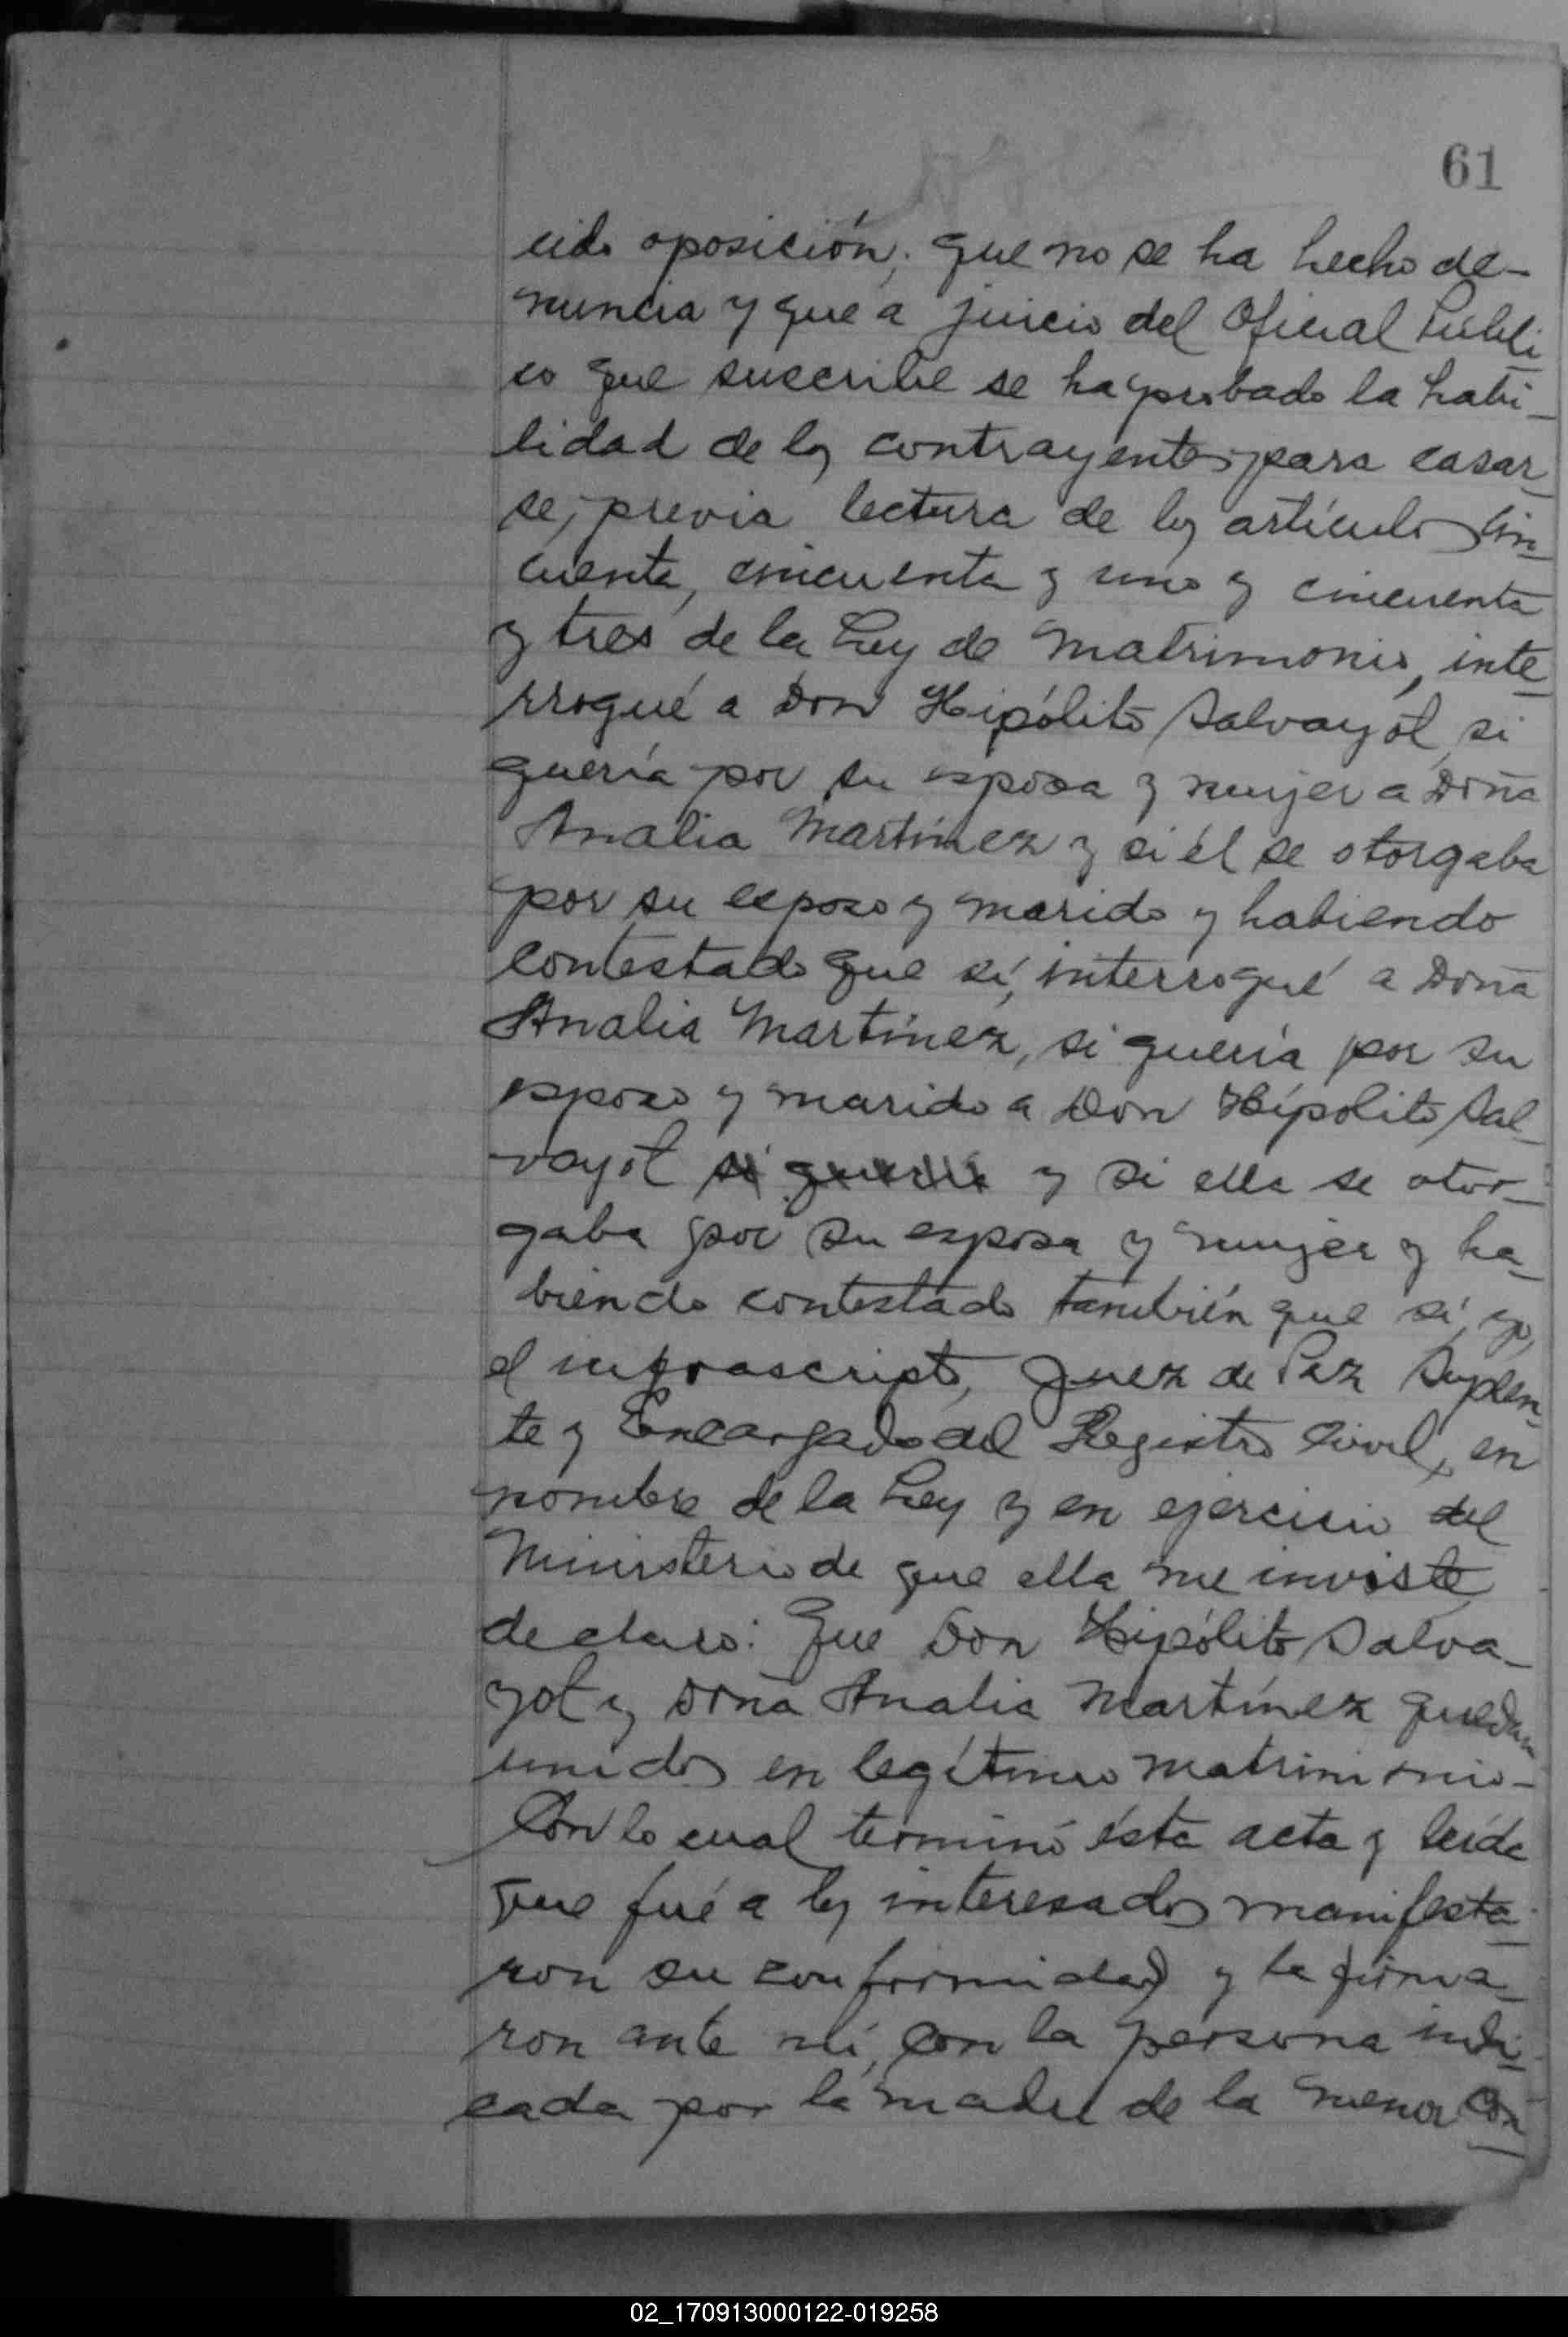 61
cido oposición; que no se ha hecho de-
nuncia y que a juicio del Oficial Públi-
co que suscribe se ha probado la habi-
lidad de los contrayentes para casar-
se, previa lectura de los artículos cin-
cuenta, cincuenta y uno y cincuenta
y tres de la Ley de Matrimonio, inte-
rrogué a Don Hipólito Salvayot, si
quería por su esposa y mujer a Doña
Analia Martínez y si él se otorgaba
por su esposo y marido y habiendo
contestado que sí, interrogué a Doña
Analia Martínez, si quería por su
esposo y marido a Don Hipólito Sal-
vayot si quería y si ella se otor-
gaba por su esposa y mujer y ha-
biendo contestado también que sí, yo,
el infrascripto, Juez de Paz Suplen-
te y Encargado del Registro Civil, en
nombre de la Ley y en ejercicio del
Ministerio de que ella me inviste,
declaro: Que Don Hipólito Salva-
yot y Doña Analia Martínez quedan
unidos en legítimo matrimonio-
Con lo cual terminó ésta acta y leída
que fué a los interesados manifesta-
ron su conformidad y la firma-
ron ante mí, con la persona indi-
cada por la madre de la menor con-
02_170913000122-019258